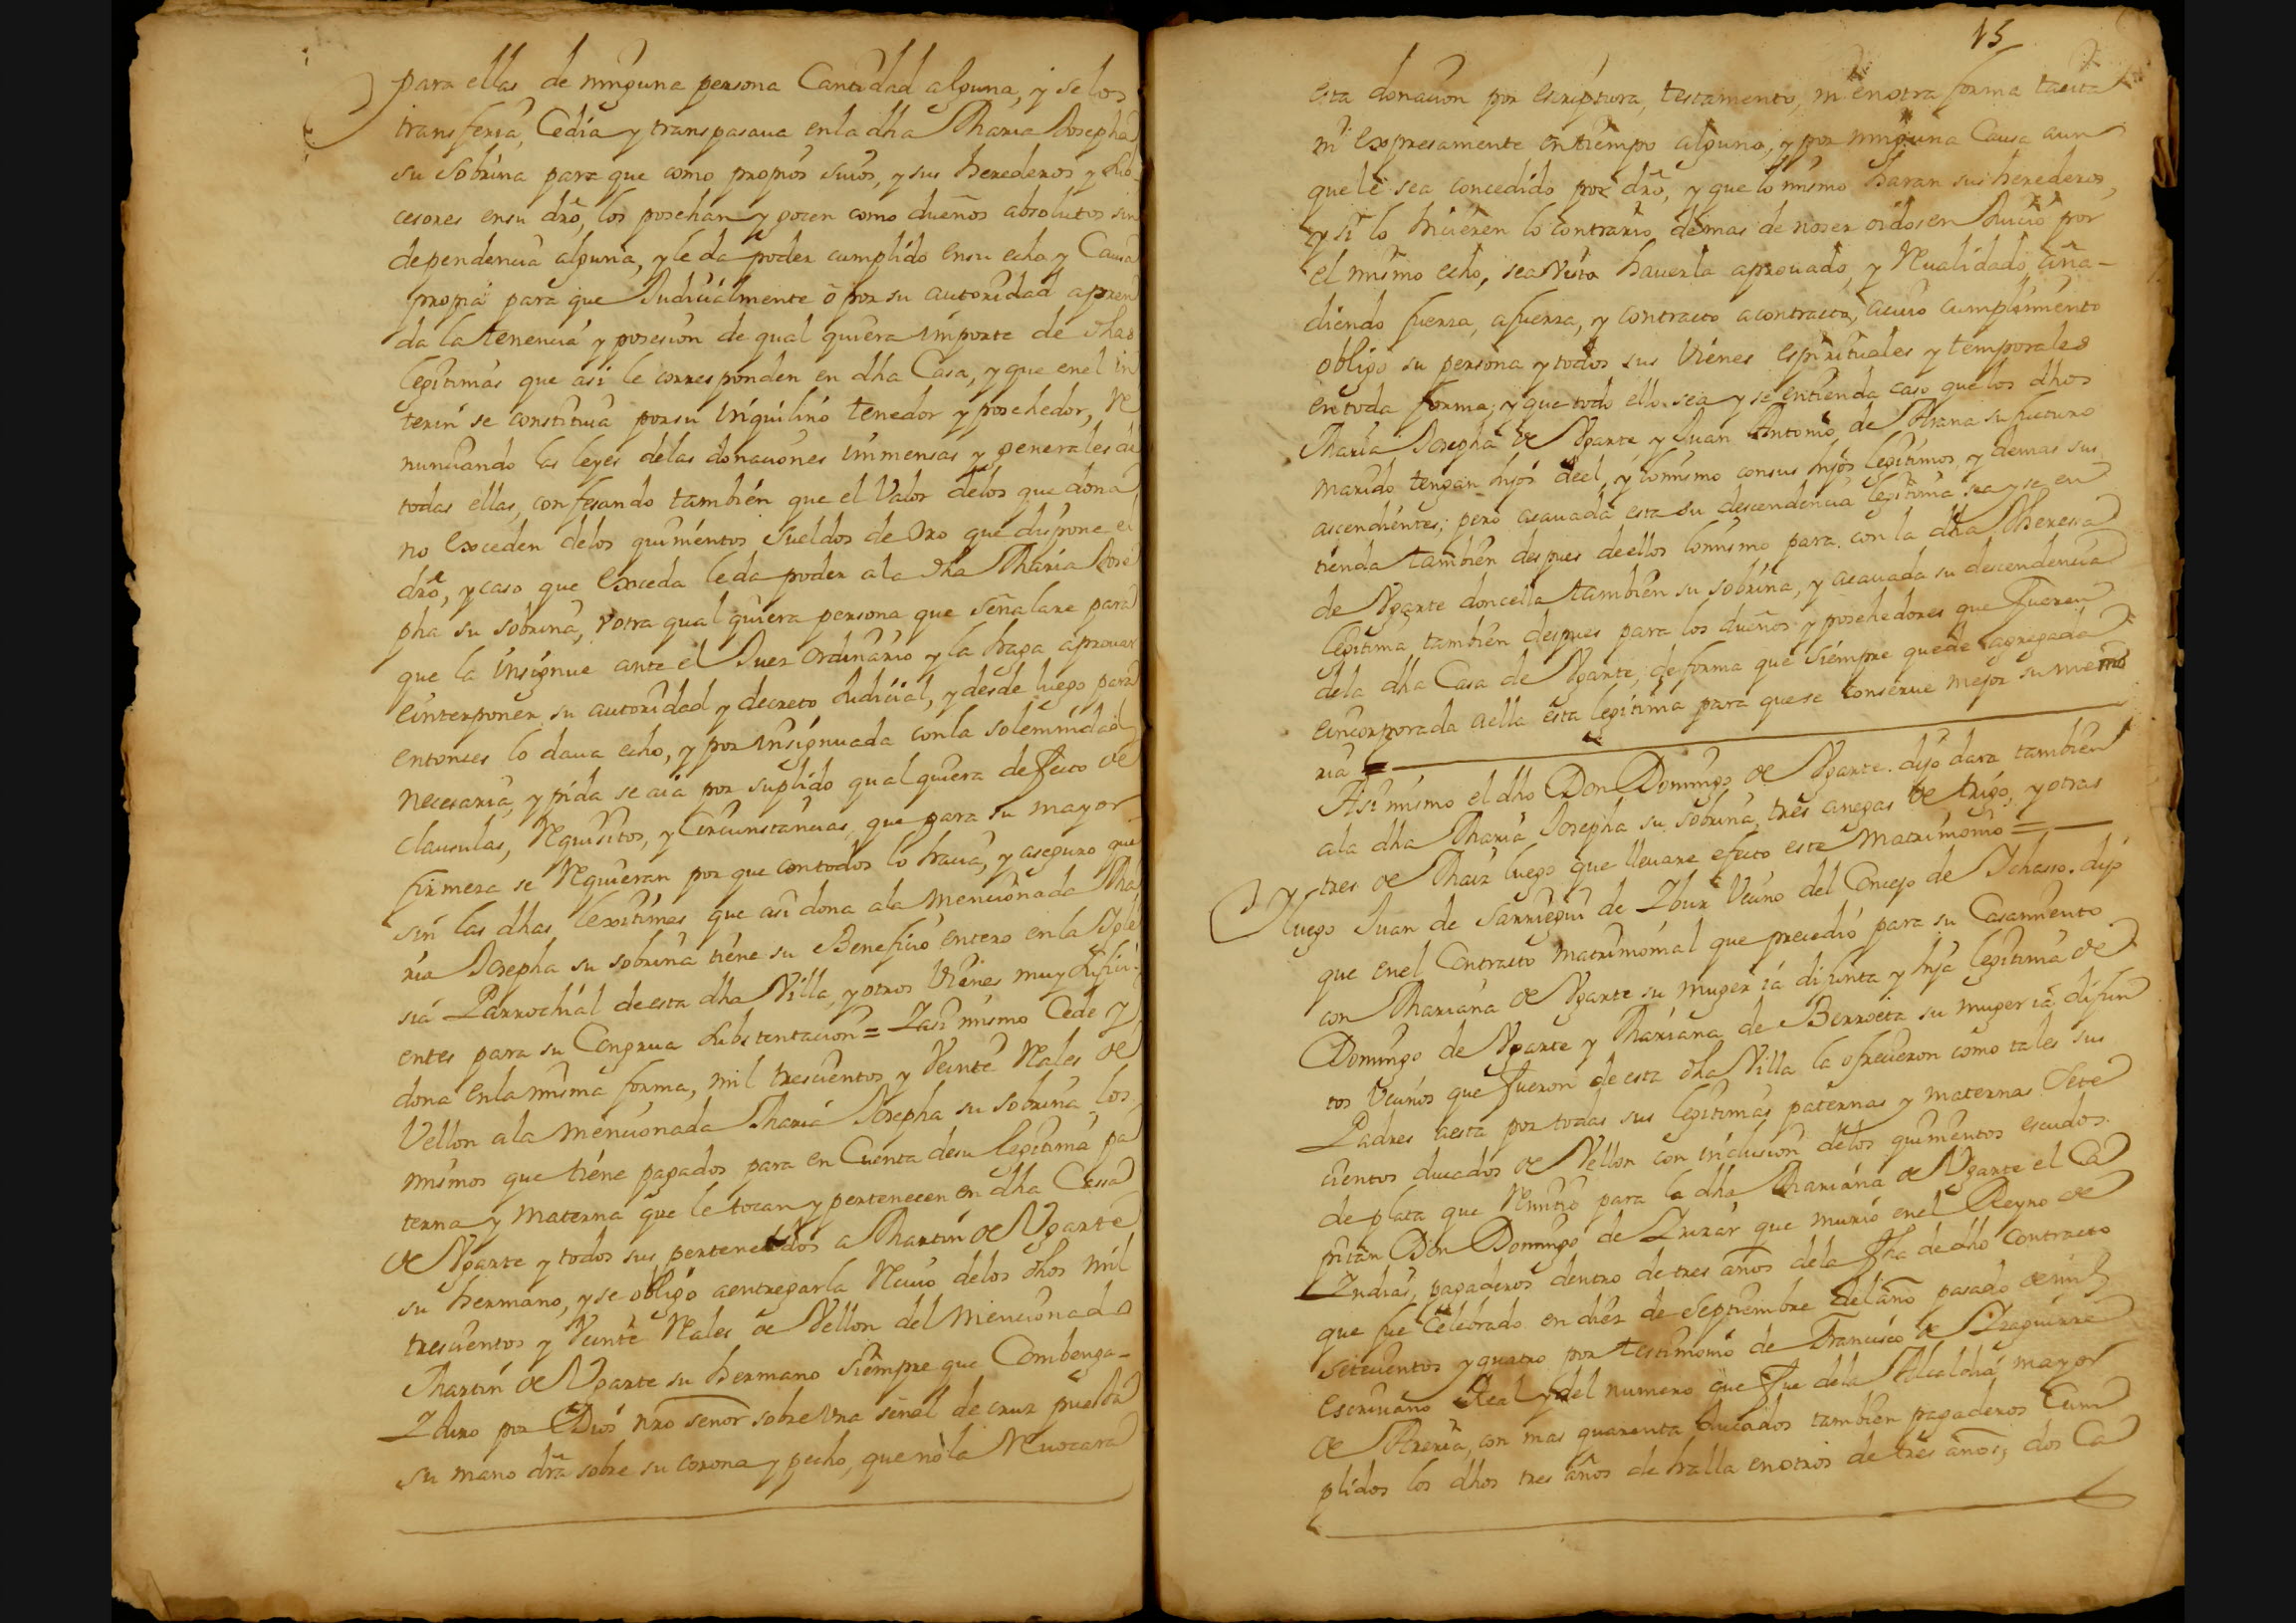 para ellas de ninguna persona Cantidad alguna, y se los
transferia, Cedia y transpasaua en la dha Maria Josepha
su sobrina para que como propios suios, y sus herederos y sub-
cesores en su dro, los posehan y gocen como dueños absolutos sin
dependencia alguna, y le da poder cumplido en su echo y Causa
propia para que Judicialmente ó por su autoridad apren
da la tenencia y posesion de qual quiera importe de dhas
legitimas que asi le corresponden en dha Casa, y que en el in
terin se constituia por su inquilino tenedor y posehedor, Re
nunciando las leyes de las donaciones inmensas y generales de
todas ellas, confesando tambien que el Valor de los que dona
no Exceden de los quinientos sueldos de Oro que dispone el
dro, y caso que Exceda le da poder a la dha Maria Jose
pha su sobrina, y otra qual quiera persona que señalare para
que la insignue ante el Juez Ordinario y la haga aprouar
e interponer su autoridad y decreto Judicial, y desde luego para
entonses lo daua echo, y por insignuada con la solemnidad
necesaria, y pida se aia por suplido qual quiera defecto de
clausulas, Requisitos, y Circunstancias que para su mayor
firmeza se Requieran por que con todos lo hacia, y aseguro que
sin las dhas lexitimas que asi dona a la mencionada Ma
ria Josepha su sobrina tiene su Beneficio entero en la Igle
sia Parrochial de esta dha Villa, y otros Vienes muy sufici-
entes para su Congrua subtentacion = Y asi mismo Cede y
dona en la misma forma, mil trescientos y Veinte Reales de
Vellon a la mencionada Maria Josepha su sobrina los
mismos que tiene pagados para en Cuenta de su legitima pa
terna y materna que le tocan y pertenecen en dha Cassa
de Vgarte y todos sus pertenecidos a Martin de Vgarte
su hermano, y se obligó a entregarla Reciuo de los dhos mil
trescientos y Veinte Reales de Vellon del mencionado
Martin de Vgarte su hermano siempre que Combenga-
Y Juro por Dios nro señor sobre Vna señal de cruz puesta
su mano dra sobre su corona y pecho, que no la Reuocara
15
esta donacion por escriptura, testamento, ni en otra forma tacita
ni Expresamente en tiempo alguno, y por ninguna Causa aun
que le sea concedido por dro, y que lo mismo haran sus herederos,
y si lo hicieren lo contrario demas de no ser oidos en Juicio por
el mismo echo, sea visto hauerla aprouado, y Reualidado aña-
diendo fuersa, a fuersa, y contracto a contracto, a cuio cumplimiento
obligo su persona y todos sus Vienes espirituales y temporales
en toda forma; y que todo ello sea y se entienda caso que los dhos
Maria Josepha de Vgarte y Juan Antonio de Arana su futuro
marido tengan hijos de el, y lo mismo con sus hijos legitimos, y demas sus
ascendientes; pero acauada esta su descendencia legitima sea y se en
tienda tambien despues de ellos lo mismo para con la dha Theresa
de Vgarte doncella tambien su sobrina, y acauada su descendencia
legitima tambien despues para los dueños y posehedores que fueren
de la dha Casa de Vgarte; de forma que siempre quede agregada
e incorporada a ella esta legitima para que se conserue mejor su memo
ria =
Asi mismo el dho Don Domingo de Vgarte dijo dara tambien
a la dha Maria Josepha su sobrina, tres anegas de trigo, y otras
tres de Maiz luego que lleuare efecto este Matrimonio =
Y luego Juan de Sarriegui de Ybur Vecino del Concejo de Ychasso, dijo
que en el Contracto matrimonial que precedió para su Casamiento
con Mariana de Vgarte su muger ia difunta y hija legitima de
Domingo de Vgarte y Mariana de Berroeta su muger ia difun
tos Vecinos que fueron de esta dha Villa la ofrecieron como tales sus
Padres a esta por todas sus legitimas paternas y maternas Sete
cientos ducados de Vellon con inclusion de los quinientos escudos
de plata que Remitio para la dha Mariana de Vgarte el Ca
pitan Don Domingo de Yrizar que murió en el Reyno de
Yndias, pagaderos dentro de tres años de la fha de dho contracto
que fue Celebrado en diez de Septiembre del año pasado de mil
setecientos y quatro por testimonio de Francisco de Yraguirre
escriuano Real y del numero que fue de la Alcaldia mayor
de Areria, con mas quarenta ducados tambien pagaderos Cum
plidos los dhos tres años de halla en otros de tres años; dos Ca